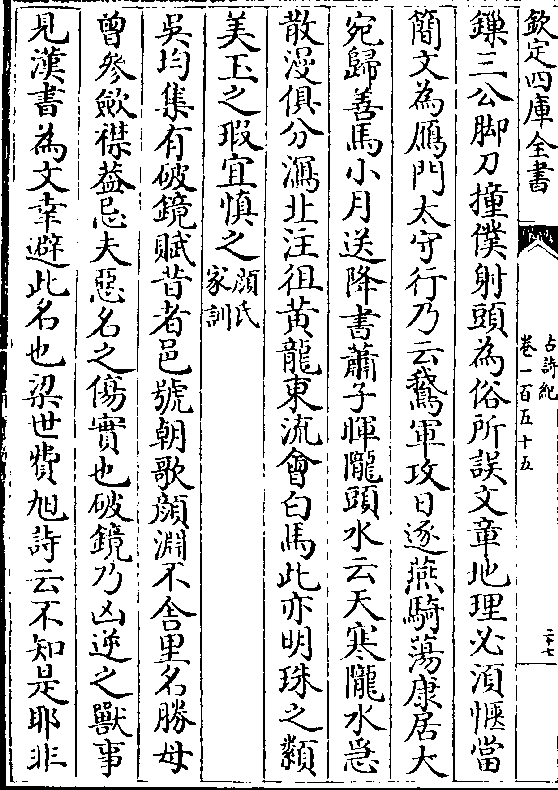 欽定四庫全書
古詩紀
卷一百五十五
二十七
鏁三公脚刀撞僕射頭為俗所誤文章地理必須愜當
簡文為鴈門太守行乃云鵞軍攻日逐燕騎蕩康居大
宛歸善馬小月送降書蕭子暉隴頭水云天寒隴水急
散漫俱分瀉北注徂黄龍東流會白馬此亦明珠之纇
美玉之瑕宜慎之顔氏家訓
吳均集有破鏡賦昔者邑號朝歌顔淵不舍里名勝母
曾參歛襟葢忌夫惡名之傷實也破鏡乃凶逆之獸事
見漢書為文幸避此名也梁世費旭詩云不知是耶非